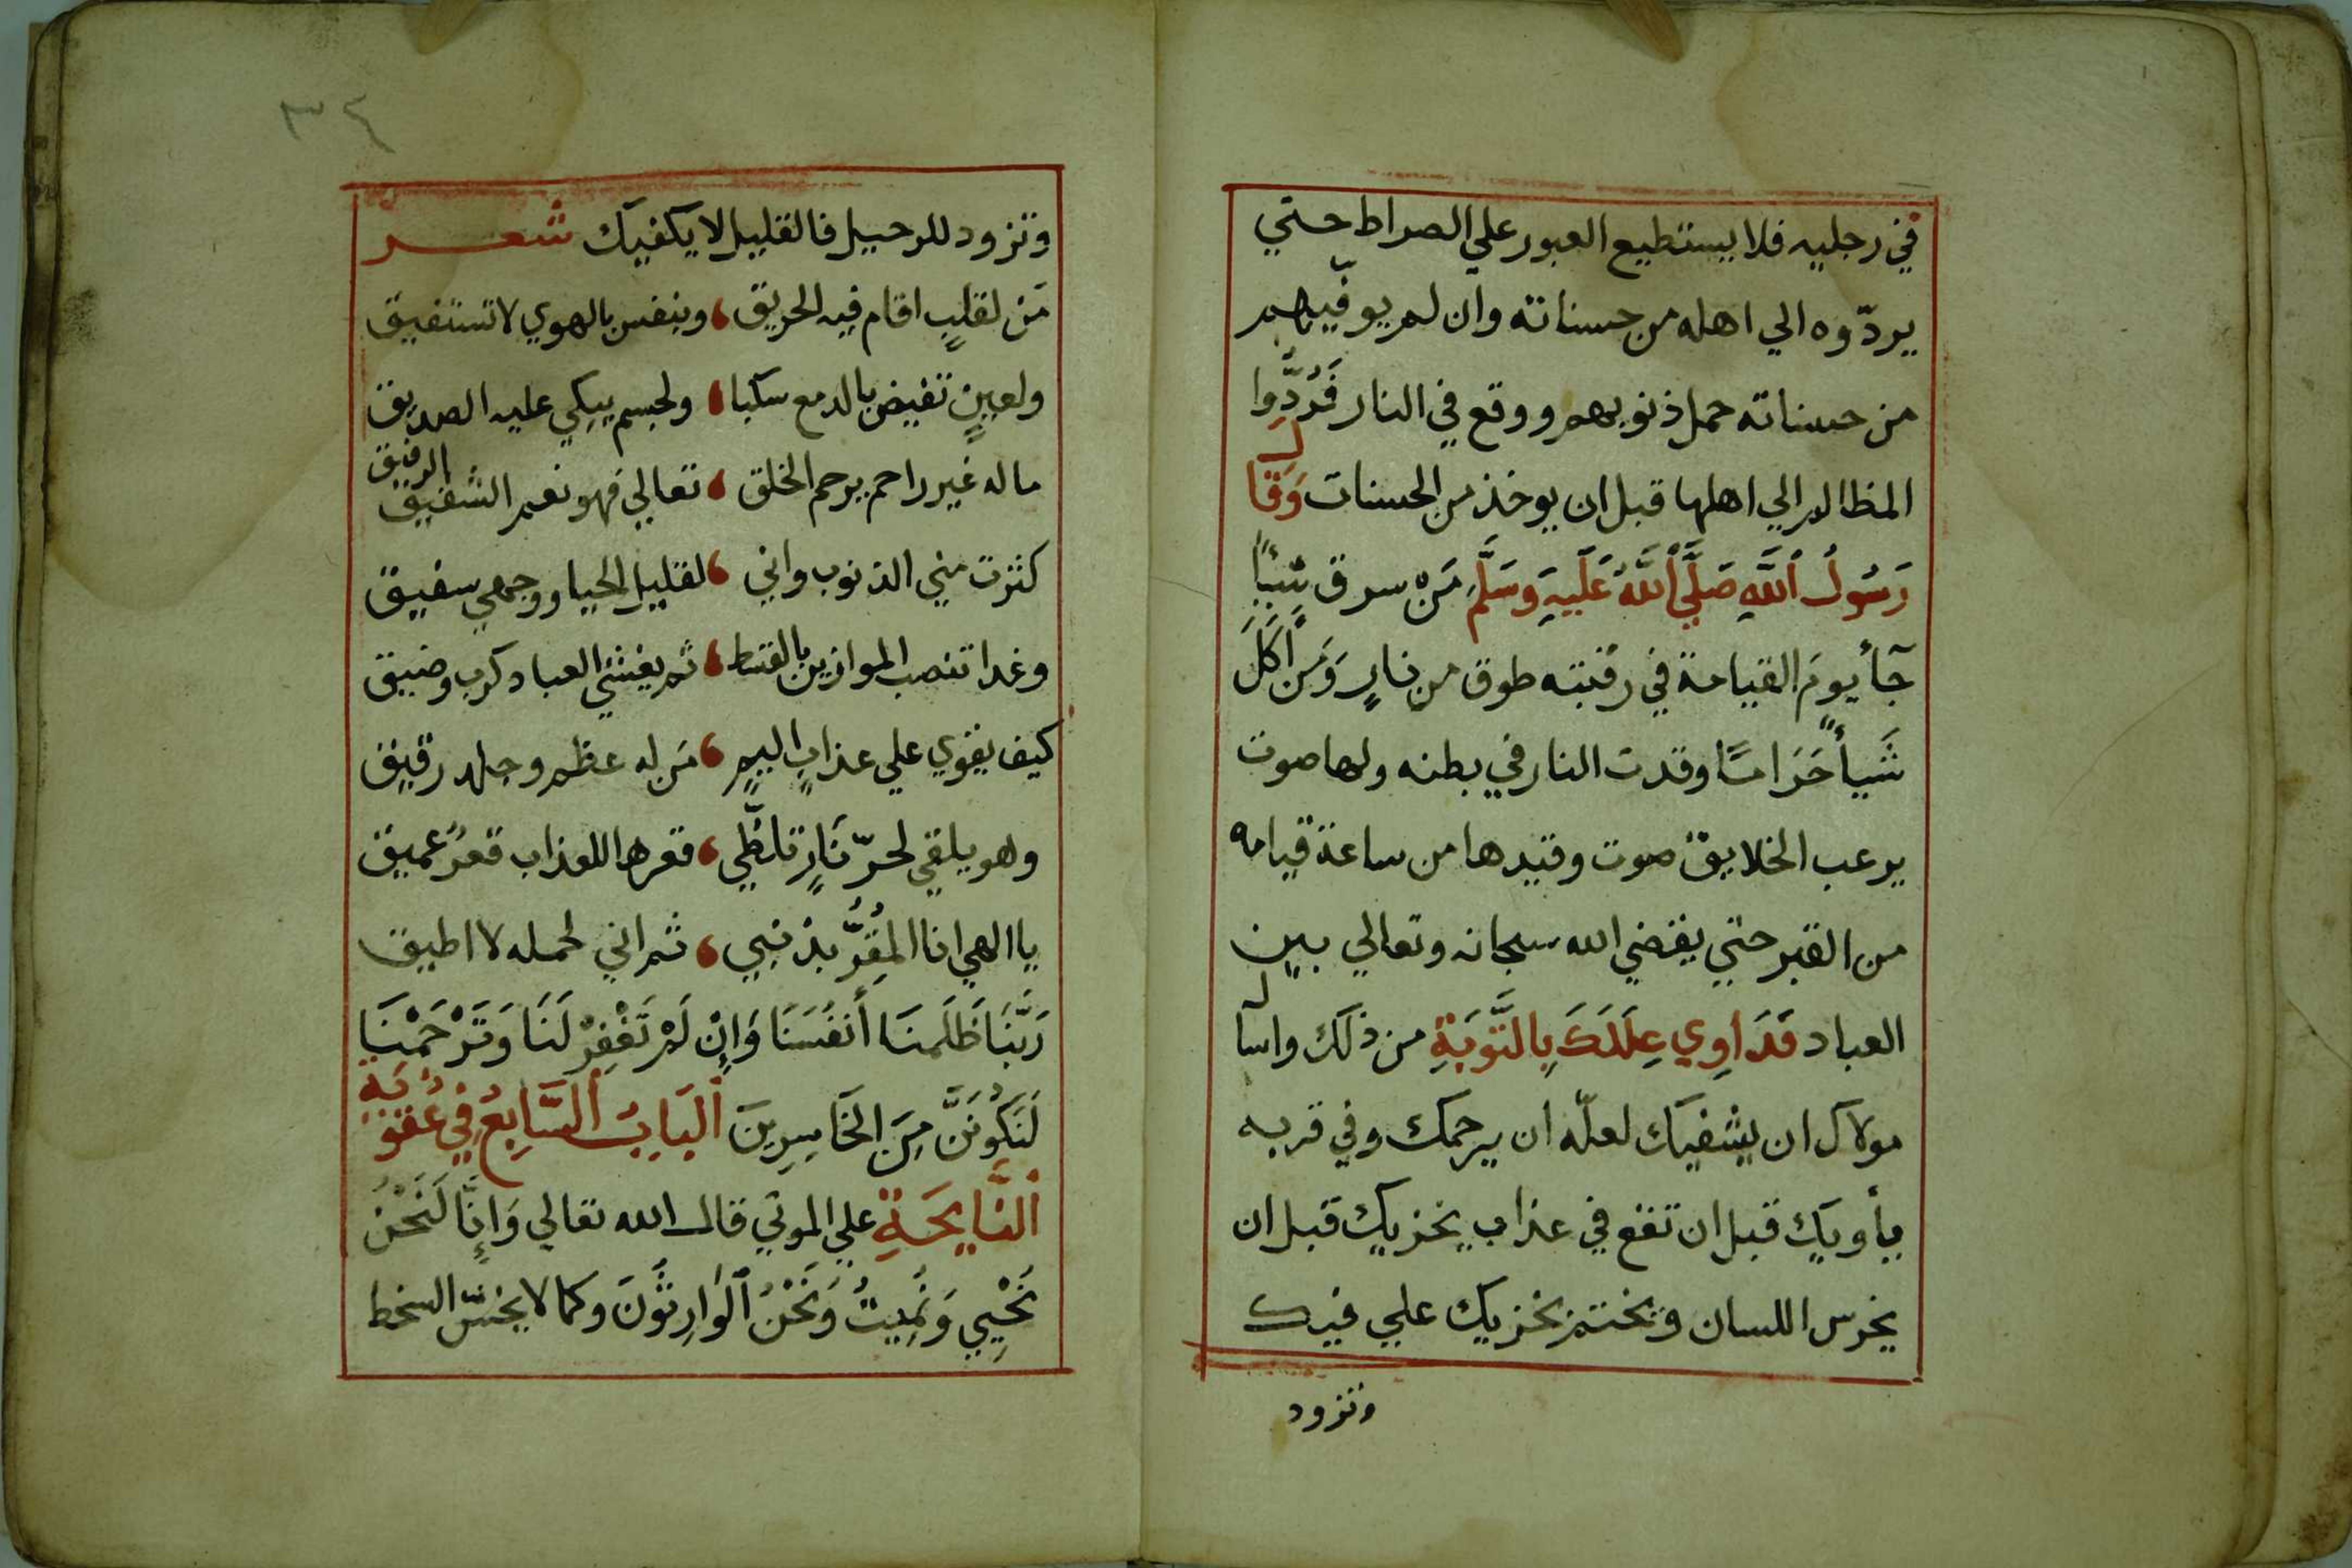 في رجليه فلا يستطيع العبور علي الصراط حتي
يردّوه الي اهله من حسناته وان لم يوفّيهم
من حسناته حمل ذنوبهم ووقع في النار فَرُدُّوا
المظالم الي اهلها قبل ان يوخذ من الحسنات وَقَال
رَسُولُ ٱللَّهِ صَلَّي ٱللَّهُ عَلَيْهِ وَسَلَّمِ مَنْ سرق شيأً
جَآ يومَ القيامة في رقبته طوق من نارٍ وَمَن اَكَلَ
شَيأً حَرَامًا وقدت النار في بطنه ولها صوت
يرعب الخلايق صوت وقيدها من ساعة قيامه
من القبر حتي يقضي الله سبحانه وتعالي بين
العباد فَدَاوِي عِلَلَكَ بِالتَّوبَةِ من ذلك واسآل
مولاك ان يشفيك لعلّه ان يرحمك وفي قربه
يأويك قبل ان تقع في عذاب يخزيك قبل ان
يخرس اللسان ويختم بخزيك علي فيك
وتزود
٣٤
وتزود للرحيل فالقليل لا يكفيك شعر
مَن لقلبٍ اقام فيه الحريق ، وبنفس بالهوي لا تستفيق
ولعينٍ تفيض بالدمع سكبا ، ولجسم يبكي عليه الصديق
ما له غير راحم يرحم الخلق ، تعالي فهو نعم الشفيق الرفيق
كثرت مني الذنوب واني ، لقليل الحيا ووجهي سفيق
وغدا تنصب الموازين بالقسط ، ثم يغشي العباد كرب وضيق
كيف يقوي علي عذابٍ اليمٍ ، مَن له عظم وجلد رقيق
وهو يلقي لحرّ نَارٍ تلظّي ، قعرها للعذاب قعرٌ عميق
يا الهي انا المُقِرُّ بذنبي ، ثم اني لحمله لا اطيق
رَبَّنَا ظَلَمنَا أَنفُسَنَا وَاِنْ لَمْ تَغْفِرْ لَنَا وَتَرْحَمْنَا
لَنَكُونَنَّ مِنَ الخَاسِرِينَ ٱلبَابُ ٱلسَّابِعُ فِي عُقُوبَةِ
ٱلنَّايحَةِ علي الموتي قال الله تعالي وَاِنَّا لَنَحْنُ
نُحْيِي وَنُمِيتُ وَنَحْنُ ٱلوَارِثُونَ وكما لا يخسّ السخط